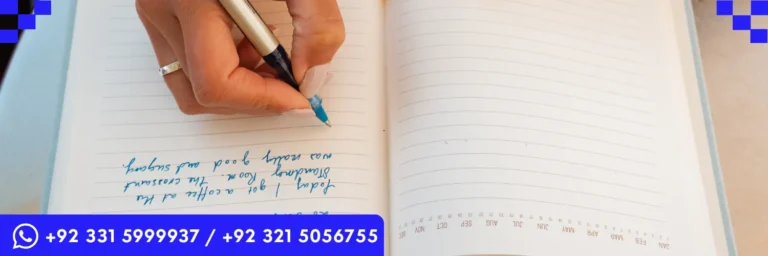 Today, I got a coffee at the
Standing Room. The croissant
was really good and sugary
JAN FEB MAR APR MAY JUN JUL AUG SEP OCT NOV DEC
+92 331 5999937 / +92 321 5056755